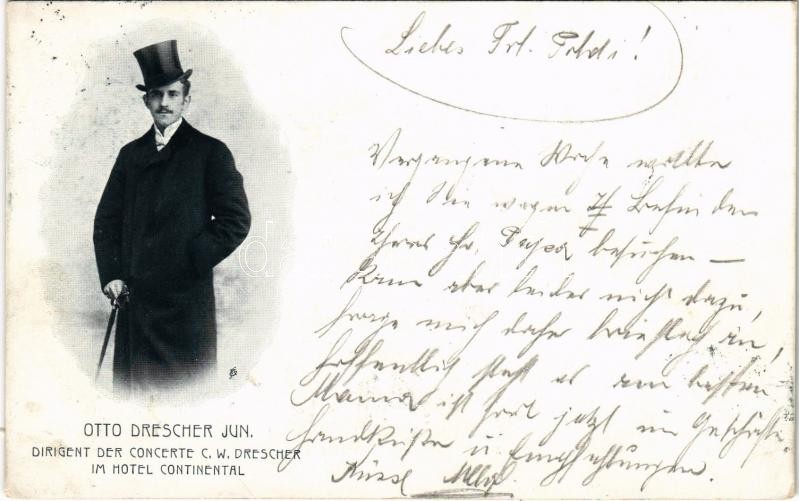 Liebes Frl. Poldi!
Vergangene Woche wollte
ich Sie wegen Befinden
Ihres Hr. Papa besuchen —
kam aber leider nicht dazu,
frage mich daher brieflich an,
hoffentlich steht es am besten
Mama ist fort jetzt im Geschäfte.
Handküsse u. Empfehlungen.
OTTO DRESCHER JUN.
DIRIGENT DER CONCERTE C. W. DRESCHER
IM HOTEL CONTINENTAL